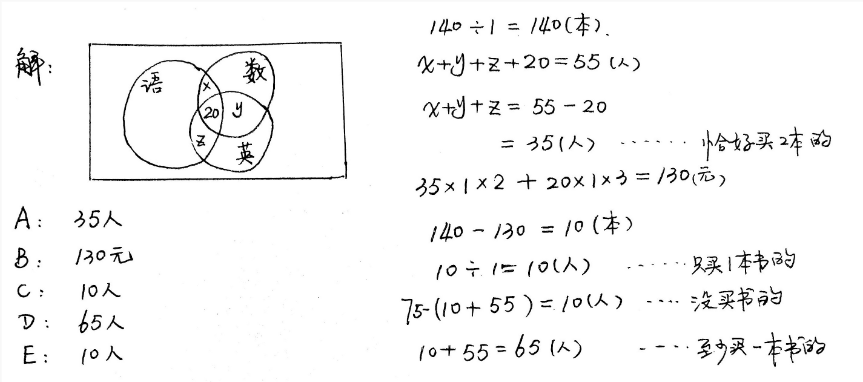 解：
语
数
x
20
y
z
英
A： 35人
B： 130元
C： 10人
D： 65人
E： 10人
140÷1=140(本).
x+y+z+20=55(人)
x+y+z=55-20
=35(人) …… 恰好买2本的
35×1×2+20×1×3=130(元)
140-130=10(本)
10÷1=10(人) …… 只买1本书的
75-(10+55)=10(人) …… 没买书的
10+55=65(人) …… 至少买一本书的